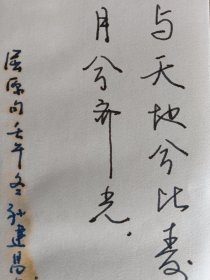 与天地兮比寿
月兮齐光.
屈原句壬午冬孙建昌